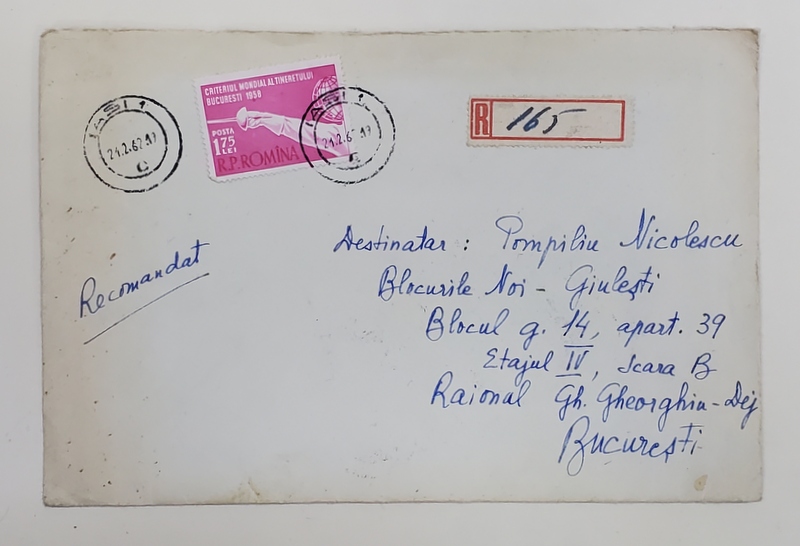 IAȘI 1
21.2.62.19
C
CRITERIUL MONDIAL AL TINERETULUI
BUCURESTI 1958
POSTA
1 75
LEI
R.P.ROMÎNA
IAȘI 1
21.2.62.19
R 165
Recomandat
Destinatar : Pompiliu Nicolescu
Blocurile Noi - Giulești
Blocul g. 14, apart. 39
Etajul IV, scara B
Raional Gh. Gheorghiu-Dej
București